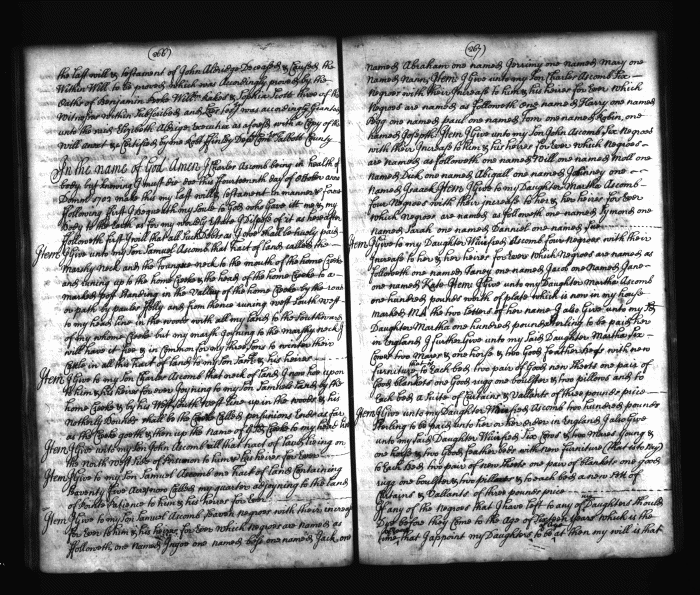 (266)
the last will & testament of John Aldridge Deceased & Caused the
Within Will to be proved which was accordingly proved by the
Oaths of Benjamin
Witnesses within Subscribed and was accordingly Granted
unto the said Elizabeth Executrix as aforesd with a Copy of the
Will annext & Certified by County
In the name of God Amen I Charles Ascomb being in health of
body but knowing I must die doe this fourteenth day of October Anno
Domni 1702 make this my last will & testament in manner & forme
following first I bequeath my Soule to God who Gave itt me & my
body to the Earth as for my worldly Estate I Dispose of it as hereafter
followeth first I will that all Just Debts as I owe shall be truly paid
Item I Give unto my Son Samuel Ascomb that tract of land called the
Marshy neck and the tongue neck to the mouth of the home Creeke
and runing up to the home Creeke & the heads of the home Creeke to a
marked post standing in the Valley of the home Creeke by the road
or path by and from thence runing West South West
to my head line in the woods with all my land to the Southward
of the home Creeke but my marsh Joyning to the marshy neck I
will have it free & in Common for my three Sons to winter their
Cattle in all this tract of land to my Son & his heires
Item I Give to my Son Charles Ascomb that neck of land I now live upon
to him & his heires for ever Joyning to my Son Samuels land by the
home Creeke & by his West South West line up in the woods & his
as the Creeke goeth & then up the
Item I Give unto my Son John Ascomb all that tract of land lying on
the North West side of to him & his heires for Ever
Item I Give to my Son Samuel Ascomb one tract of land Containing
Seventy five Acres Called my quarter adjoyning to the land
of to him & his heires for Ever
Item I Give to my Son Samuel Ascomb Seaven Negroes with their increase
for Ever to him & his heires for Ever Which Negroes are named as
followeth one named one named Bess one named Jack one
(267)
named Abraham one named Jerrimy one named Mary one
named Nanny Item I Give unto my Son Charles Ascomb Six
Negroes with their Increase to him & his heires for Ever Which
Negroes are named as followeth one named Harry one named
Pegg one named Paul one named Tom one named Robin one
named Joseph Item I Give unto my Son John Ascomb Six Negroes
with their Increase to him & his heires for Ever which Negroes
are named as followeth one named Will one named Moll one
named Dick one named Abigall one named Johnney one
named Item I Give to my Daughter Martha Ascomb
four Negroes with their increase to her & her heires for Ever
which Negroes are named as followeth one named Symond one
named Sarah one named Danniel one named Sue
Item I Give to my Daughter Winifred Ascomb four Negroes with their
Increase to her & her heires for Ever Which Negroes are named as
followeth one named one named Jacob one named Jane
one named Kate Item I Give unto my Daughter Martha Ascomb
one hundred pounds worth of plate which is now in my house
marked MA the two Letters of her name I also Give unto my sd
Daughter Martha one hundred pounds sterling to be paid her
in England I further Give unto my Said Daughter Martha Six
Cows two Mares & one horse & two Good Featherbeds with new
furniture to Each bed two pair of Good new Sheets one pair of
Good blankets one Good rugg one boulster & two pillows and to
each bed a suite of Curtains & Vallants of three pounds price
Item I Give unto my Daughter Winifred Ascomb two hundred pounds
sterling to be paid unto her or her order in England I also Give
unto my Said Daughter Winifred Six Cows & two Mares Young &
one horse & two Good Feather beds with new Furniture (that is to say)
to Each bed two pair of new Sheets one pair of blankets one good
rugg one boulster & two pillows & to each bed a new sett of
Curtains & Vallants of three pounds price
If any of the Negroes that I have left to any Daughters should
Dye before they Come to the Age of Sixteen Years which is the
time that I appoint my Daughters to be at then my will is that